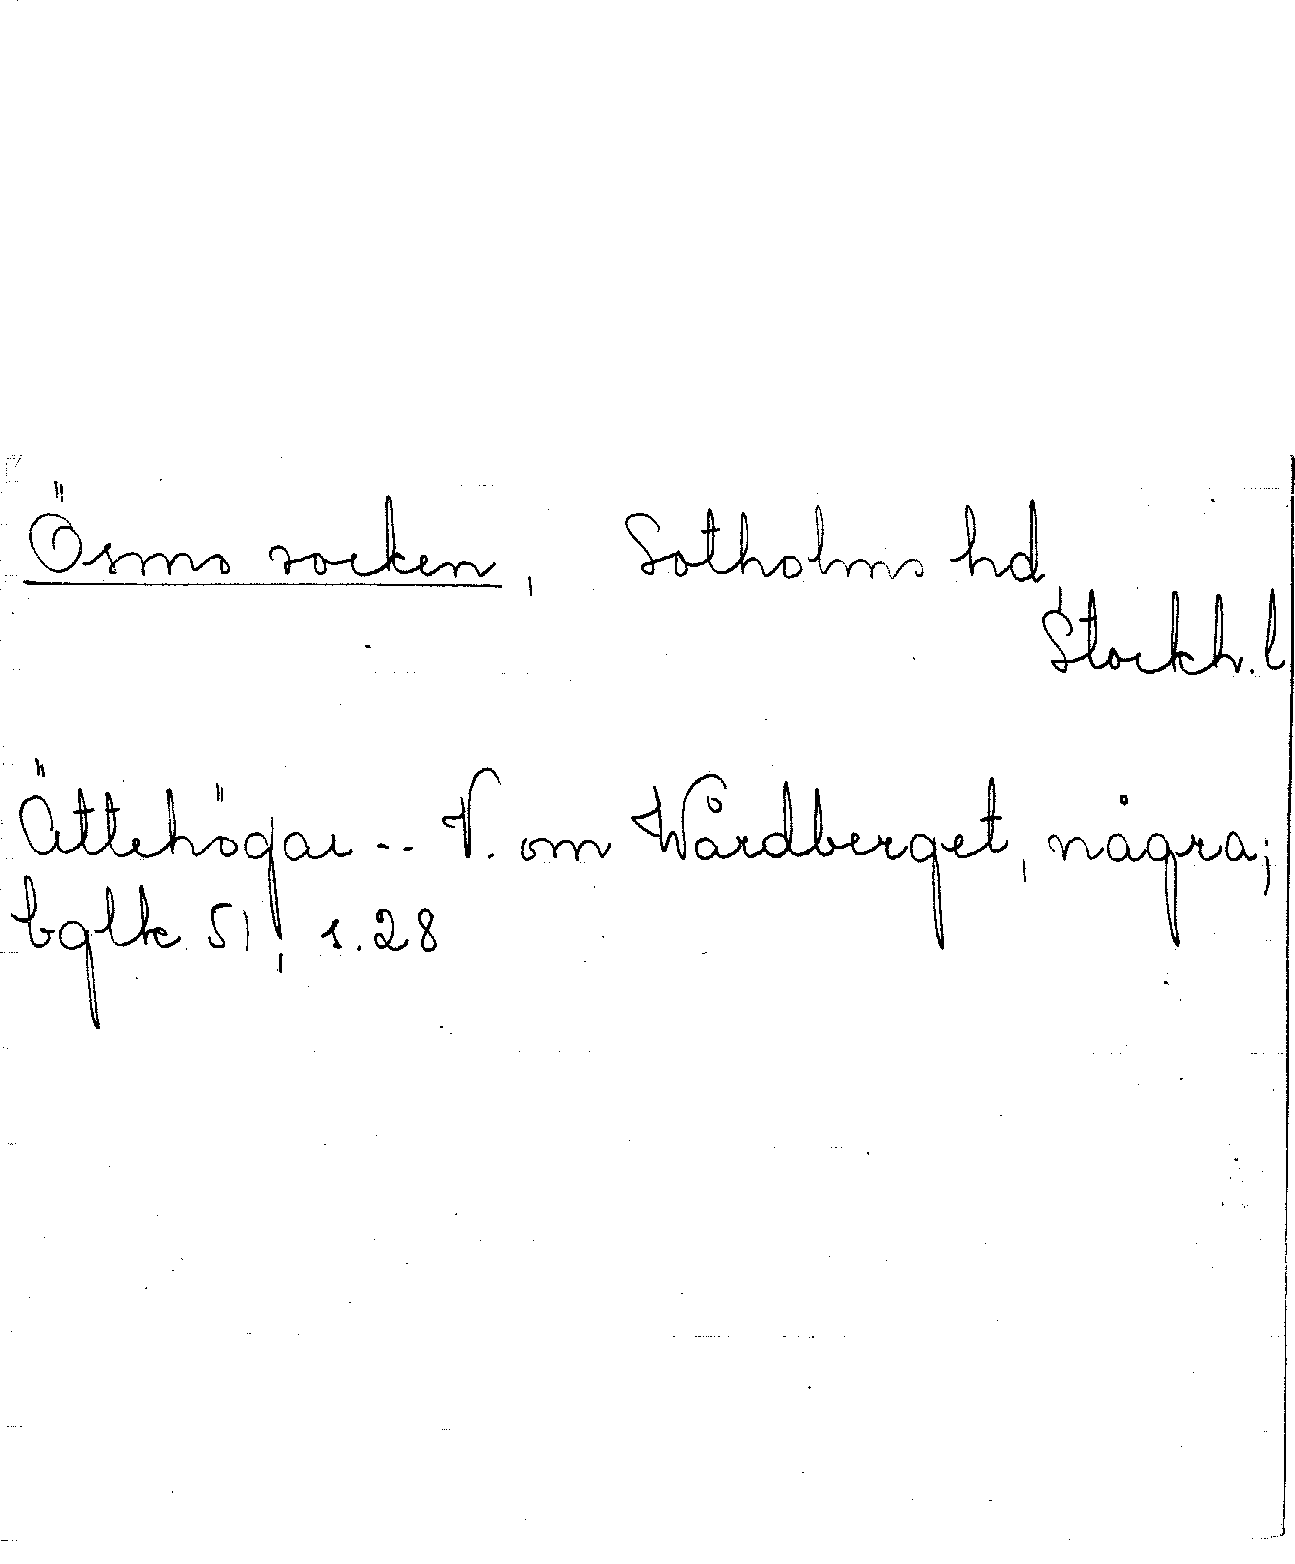 Ösmo socken, Sotholms hd,
Stockh. l
Ättehögar -- V. om Wårdberget, några;
bglk 51, s. 28